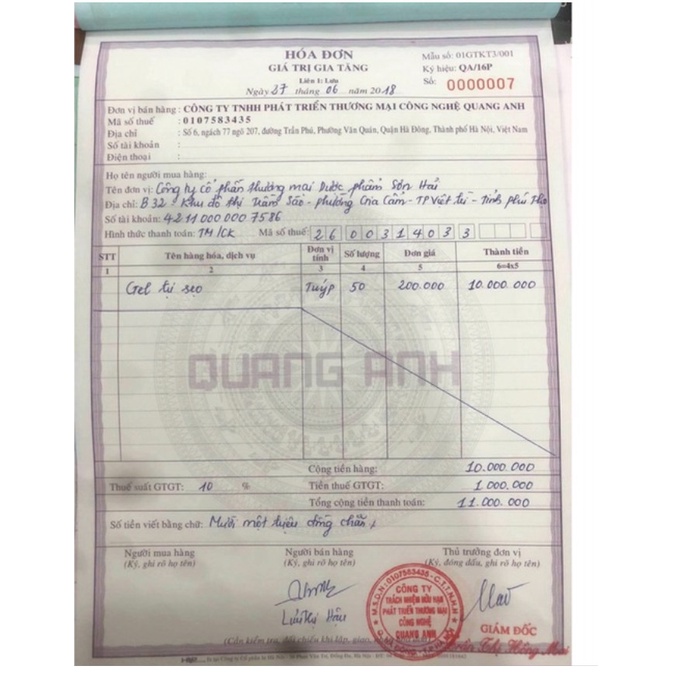 HÓA ĐƠN
GIÁ TRỊ GIA TĂNG
Liên 1: Lưu
Ngày 27 tháng 06 năm 2018
Mẫu số: 01GTKT3/001
Ký hiệu: QA/16P
Số: 0000007
Đơn vị bán hàng : CÔNG TY TNHH PHÁT TRIỂN THƯƠNG MẠI CÔNG NGHỆ QUANG ANH
Mã số thuế : 0107583435
Địa chỉ : Số 6, ngách 77 ngõ 207, đường Trần Phú, Phường Văn Quán, Quận Hà Đông, Thành phố Hà Nội, Việt Nam
Số tài khoản :
Điện thoại :
Họ tên người mua hàng:
Tên đơn vị: Công ty cổ phần thương mại Dược phẩm Sơn Hải
Địa chỉ: B32 - Khu đô thị Trầm Sào - phường Gia Cẩm - TP Việt Trì - Tỉnh Phú Thọ
Số tài khoản: 4211000000 7586
Hình thức thanh toán: TM/CK Mã số thuế: 2600314033
STT Tên hàng hóa, dịch vụ Đơn vị tính Số lượng Đơn giá Thành tiền
1 2 3 4 5 6=4x5
Gel trị sẹo Tuýp 50 200.000 10.000.000
QUANG ANH
Cộng tiền hàng: 10.000.000
Thuế suất GTGT: 10 % Tiền thuế GTGT: 1.000.000
Tổng cộng tiền thanh toán: 11.000.000
Số tiền viết bằng chữ: Mười một triệu đồng chẵn
Người mua hàng Người bán hàng Thủ trưởng đơn vị
(Ký, ghi rõ họ tên) (Ký, ghi rõ họ tên) (Ký, đóng dấu, ghi rõ họ tên)
M.S.D.N: 0107583435 - C.T.T.N.H.H
CÔNG TY
TRÁCH NHIỆM HỮU HẠN
PHÁT TRIỂN THƯƠNG MẠI
CÔNG NGHỆ
QUANG ANH
GIÁM ĐỐC
Thị Hồng Mai
(Cần kiểm tra, đối chiếu khi lập, giao,